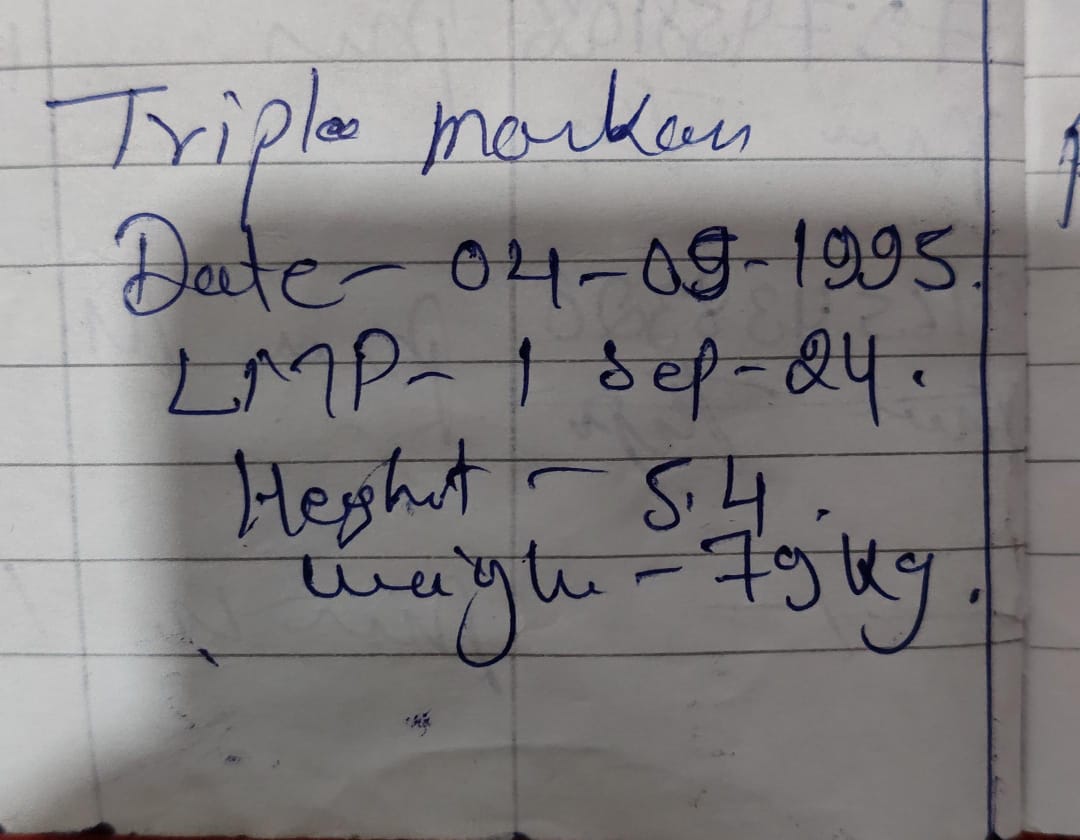 Triple markar
Date - 04-09-1995.
LMP - 1 Sep-24.
Heghit - 5.4.
waigh - 79 kg.